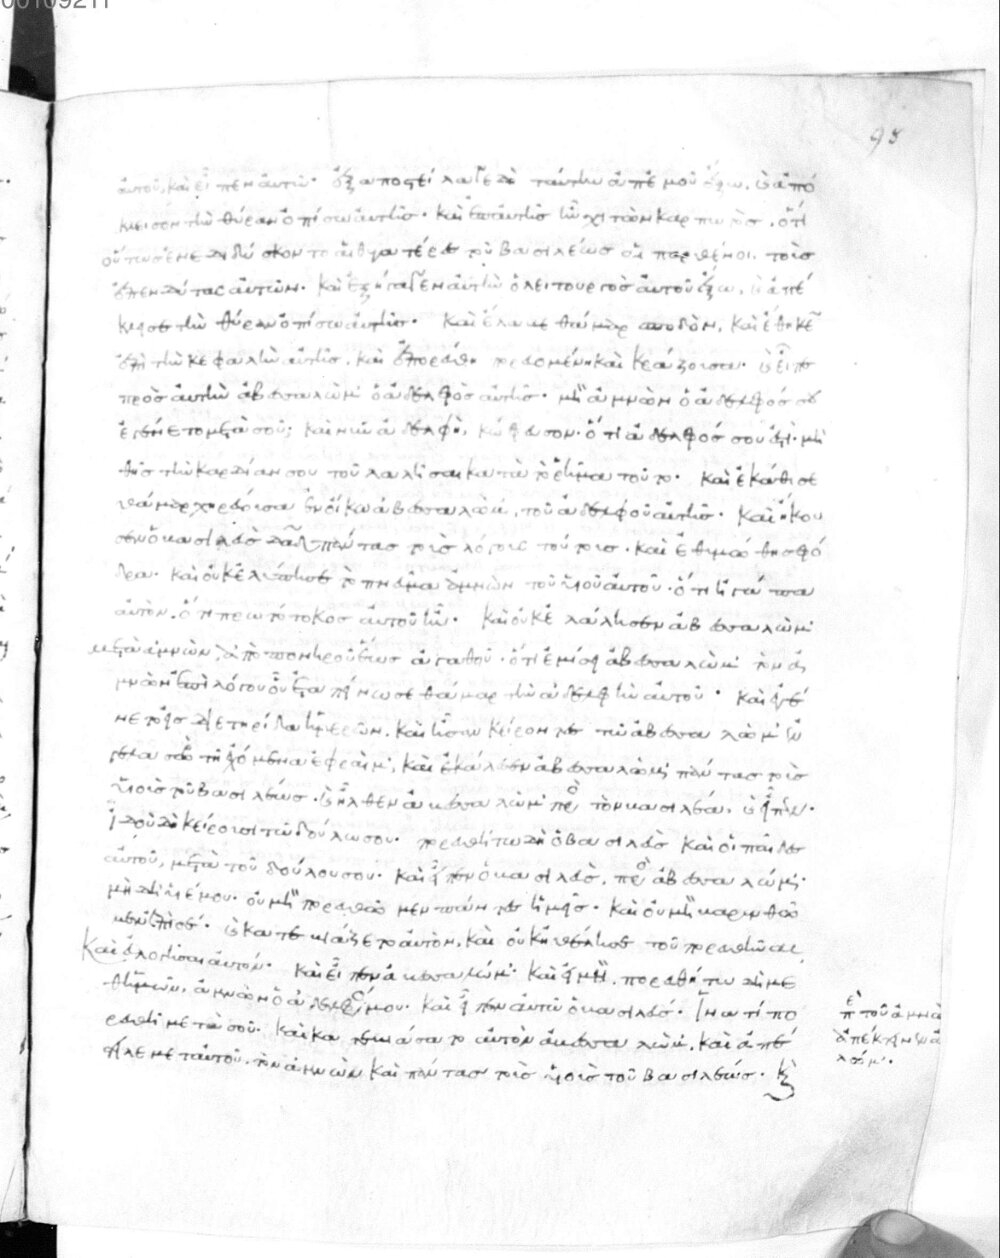 00109211
95
αὐτοῦ, καὶ εἶπεν αὐτῷ· ἐξαποστείλατε δὴ ταύτην ἀπ' ἐμοῦ ἔξω, καὶ ἀπό
κλεισον τὴν θύραν ὀπίσω αὐτῆς· καὶ ἐπ' αὐτῆς ἦν χιτὼν καρπωτός, ὅτι
οὕτως ἐνεδιδύσκοντο αἱ θυγατέρες τοῦ βασιλέως αἱ παρθένοι, τοὺς
ἐπενδύτας αὐτῶν. καὶ ἐξήγαγεν αὐτὴν ὁ λειτουργὸς αὐτοῦ ἔξω, καὶ ἀπέ
κλεισε τὴν θύραν ὀπίσω αὐτῆς. καὶ ἔλαβε θάμαρ σποδὸν, καὶ ἔθηκεν
ἐπὶ τὴν κεφαλὴν αὐτῆς, καὶ ἐπορεύθη πορευομένη καὶ κράζουσα. καὶ εἶπε
πρὸς αὐτὴν ἀβεσσαλὼμ ὁ ἀδελφὸς αὐτῆς· μὴ ἀμνὼν ὁ ἀδελφός σου
ἐγένετο μετὰ σοῦ; καὶ νῦν ἀδελφὴ, κώφευσον· ὅτι ἀδελφός σου ἐστί· μὴ
θῇς τὴν καρδίαν σου τοῦ λαλῆσαι κατὰ τὸ ῥῆμα τοῦτο. καὶ ἐκάθισε
θάμαρ χηρεύουσα ἐν οἴκῳ ἀβεσσαλὼμ, τοῦ ἀδελφοῦ αὐτῆς. καὶ ἤκου
σεν ὁ βασιλεὺς δαδ πάντας τοὺς λόγους τούτους· καὶ ἐθυμώθη σφό
δρα· καὶ οὐκ ἐλύπησε τὸ πνεῦμα ἀμνὼν τοῦ υἱοῦ αὐτοῦ· ὅτι ἠγάπα
αὐτὸν, ὅτι πρωτότοκος αὐτοῦ ἦν. καὶ οὐκ ἐλάλησεν ἀβεσσαλὼμ
μετὰ ἀμνὼν, ἀπὸ πονηροῦ ἕως ἀγαθοῦ· ὅτι ἐμίσει ἀβεσσαλὼμ τὸν ἀ
μνὼν ἐπὶ λόγου οὗ ἐταπείνωσε θάμαρ τὴν ἀδελφὴν αὐτοῦ. καὶ ἐγέ
νετο εἰς διετηρίδα ἡμερῶν, καὶ ἦσαν κείροντες τῷ ἀβεσσαλὼμ ἐν
βελασὼρ τῇ ἐχόμενα ἐφραΐμ, καὶ ἐκάλεσεν ἀβεσσαλὼμ πάντας τοὺς
υἱοὺς τοῦ βασιλέως. καὶ ἦλθεν ἀβεσσαλὼμ πρὸς τὸν βασιλέα, καὶ εἶπεν·
ἰδοὺ δὴ κείρουσι τῷ δούλῳ σου· πορευθήτω δὴ ὁ βασιλεὺς καὶ οἱ παῖδες
αὐτοῦ, μετὰ τοῦ δούλου σου. καὶ εἶπεν ὁ βασιλεὺς, πρὸς ἀβεσσαλώμ·
μὴ δὴ υἱέ μου· οὐ μὴ πορευθῶμεν πάντες ἡμεῖς· καὶ οὐ μὴ βαρυνθῶ
μεν ἐπὶ σέ. καὶ κατεβιάζετο αὐτὸν, καὶ οὐκ ἠθέλησε τοῦ πορευθῆναι,
καὶ εὐλόγησεν αὐτόν. καὶ εἶπεν ἀβεσσαλώμ· καὶ εἰ μὴ, πορευθήτω δὴ με
θ' ἡμῶν, ἀμνὼν ὁ ἀδελφός μου. καὶ εἶπεν αὐτῷ ὁ βασιλεύς· ἵνα τί πο
ρευθῇ μετὰ σοῦ. καὶ κατεβιάσατο αὐτὸν ἀβεσσαλὼμ, καὶ ἀπέ
στειλε μετ' αὐτοῦ, τὸν ἀμνὼν καὶ πάντας τοὺς υἱοὺς τοῦ βασιλέως.